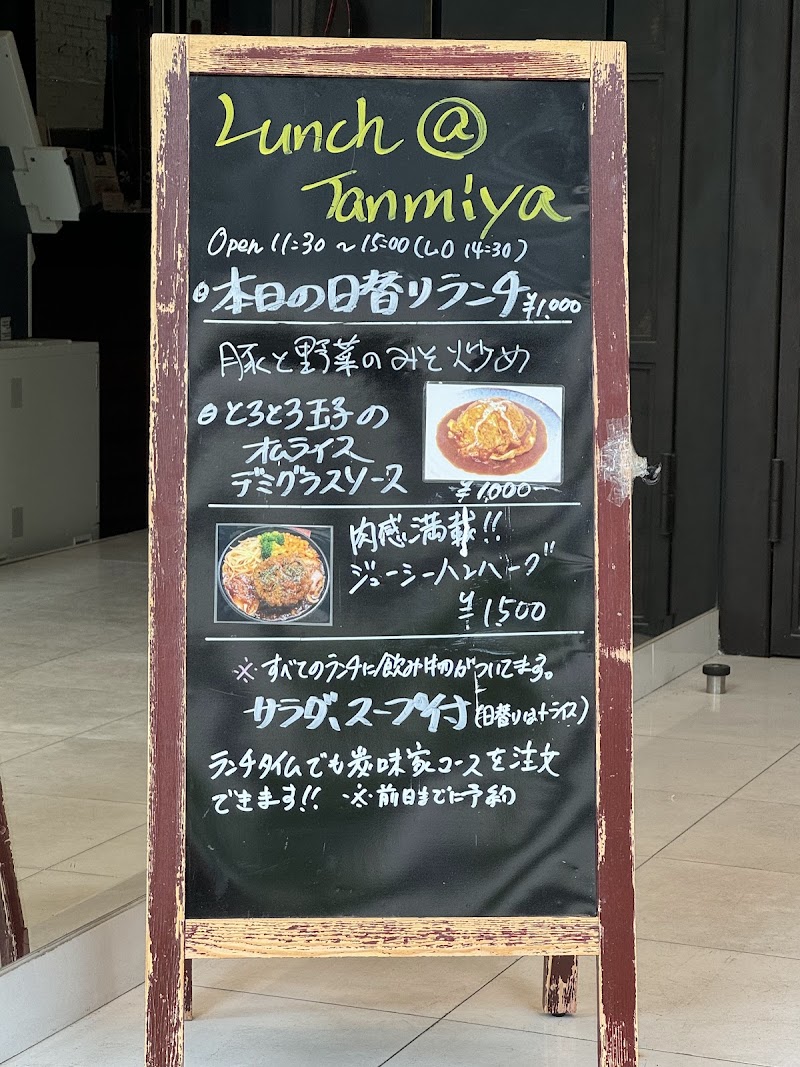 Lunch @
Tanmiya
Open 11:30 ~ 15:00 (LO 14:30)
本日の日替りランチ ¥1,000
豚と野菜のみそ炒め
とろとろ玉子の
オムライス
デミグラスソース
¥1,000-
肉感満載!!
ジューシーハンバーグ
¥1,500
※すべてのランチに飲み物がついてます。
サラダ、スープ付(日替りは+ライス)
ランチタイムでも炭味家コースを注文
できます!! ※前日までに予約